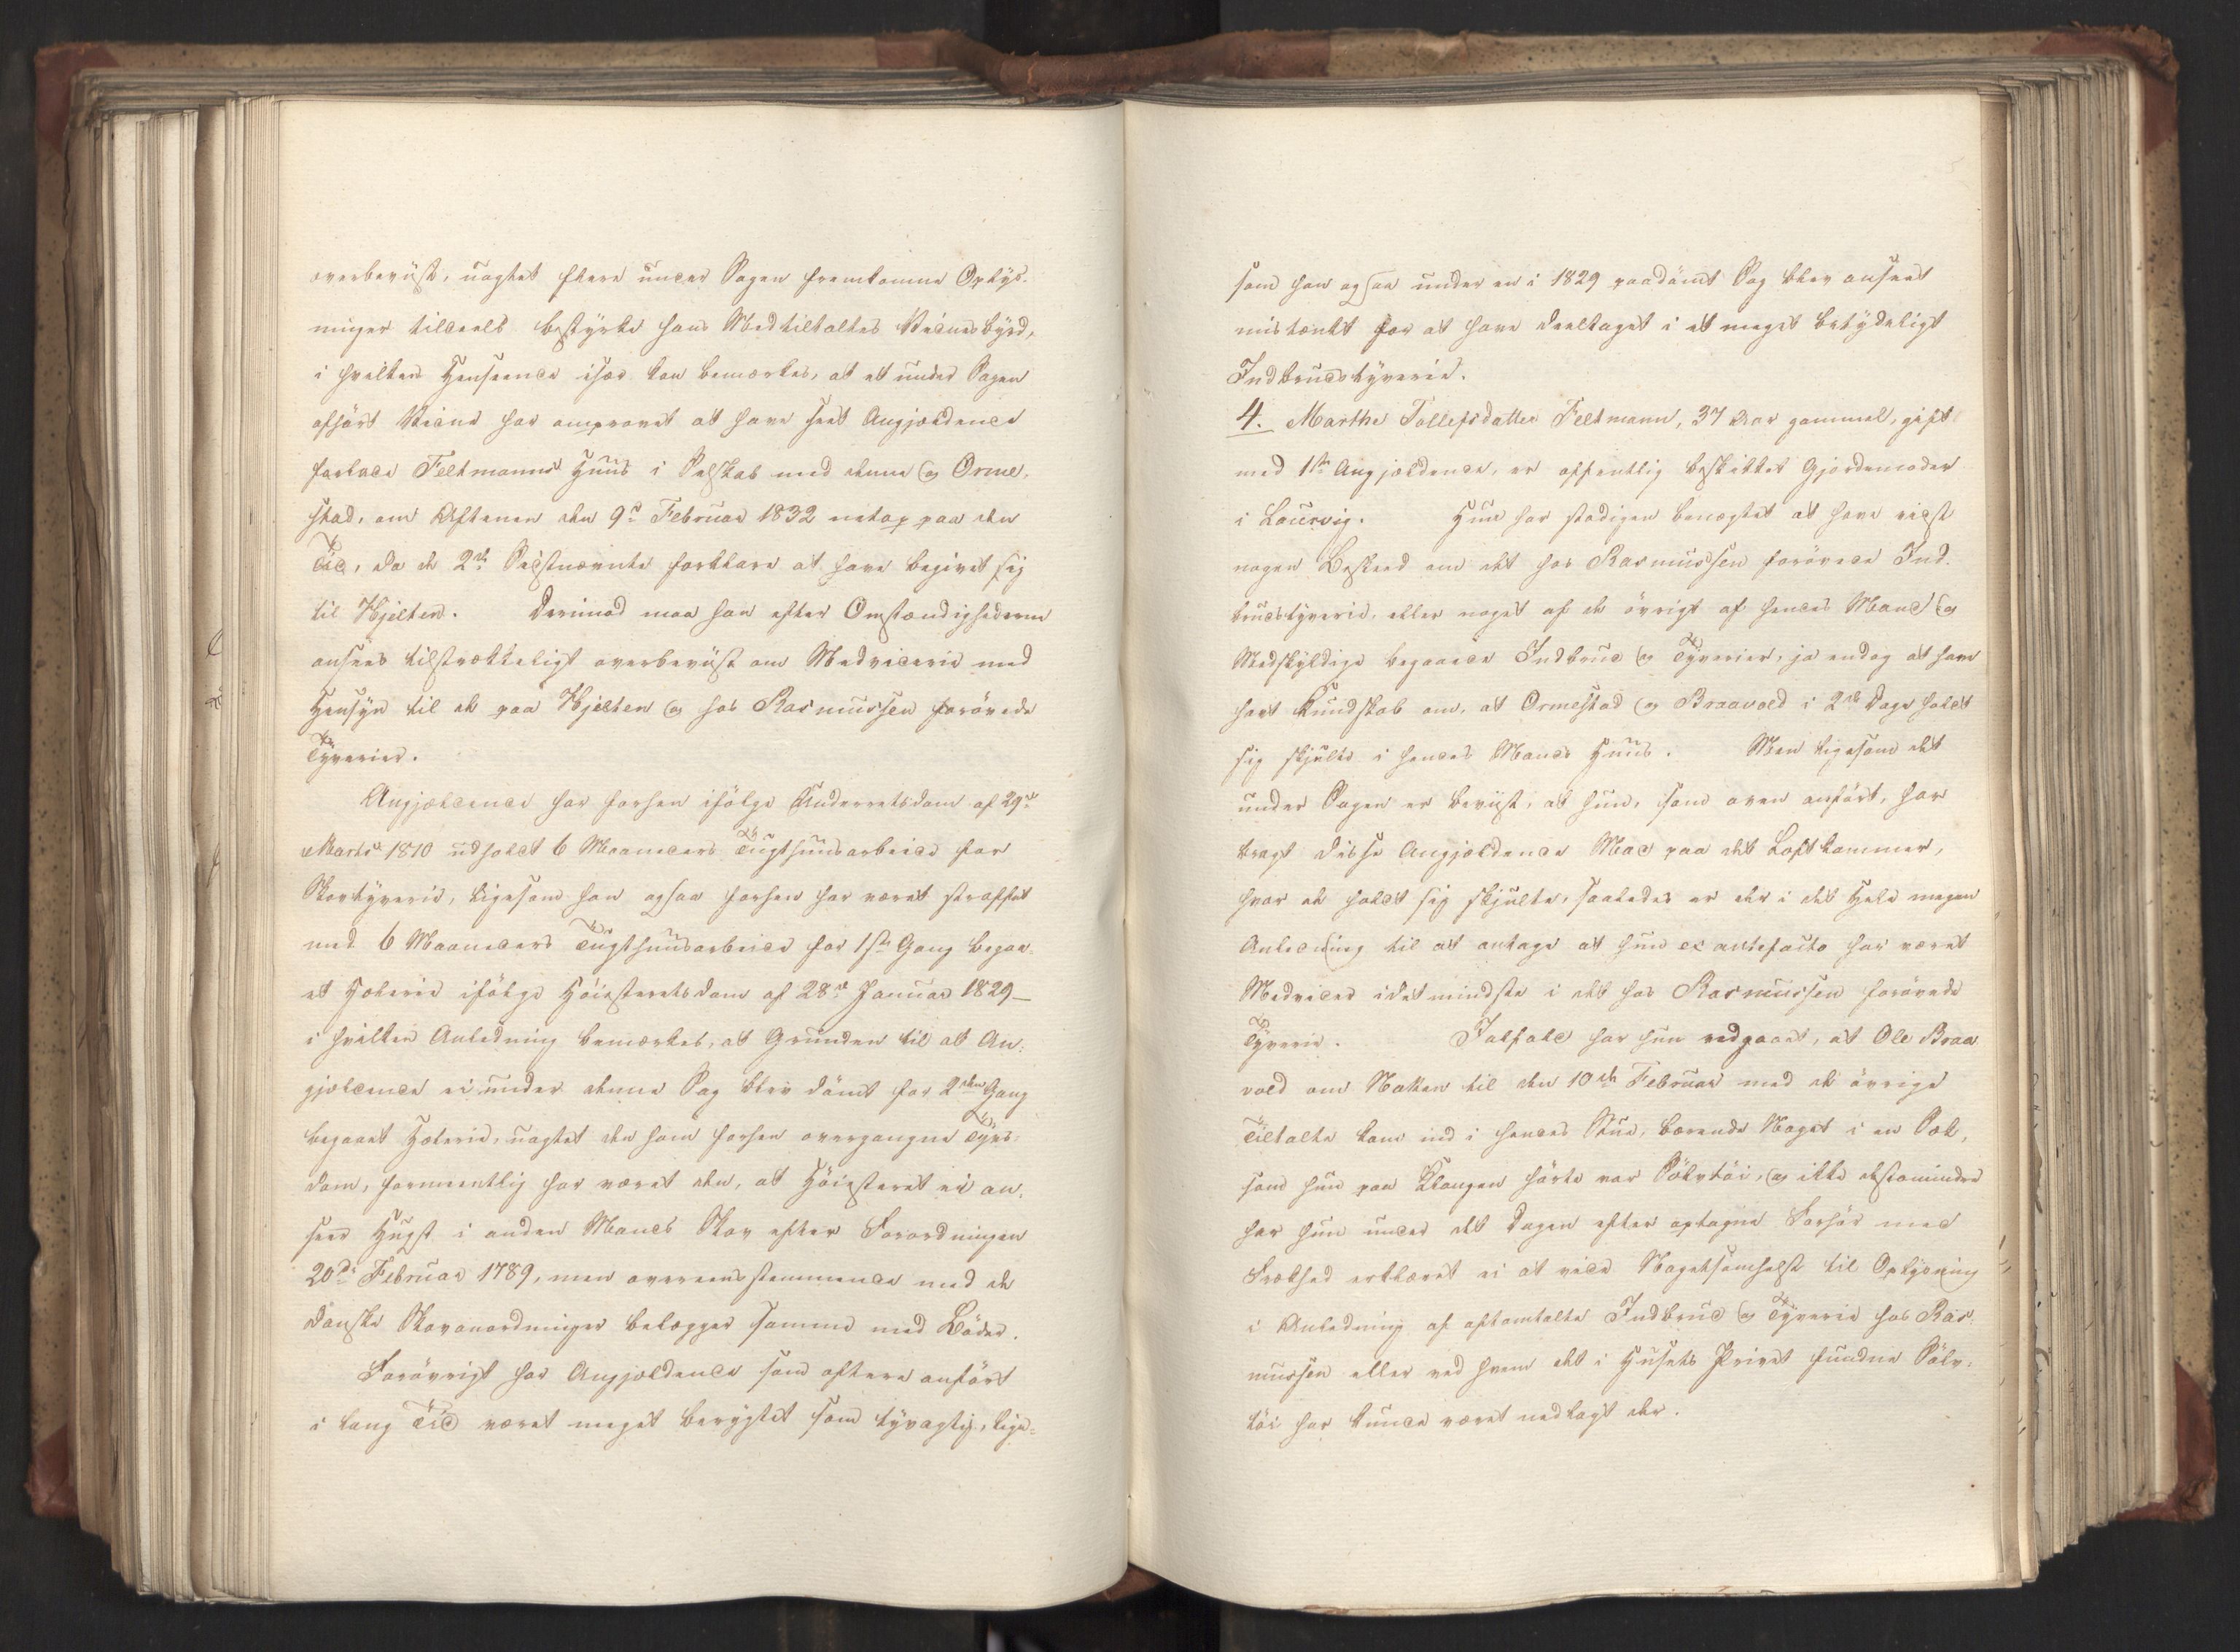 overbevüst, uagtet flere under Sagen fremkomne Oplys-
ninger tildeels bestyrke hans Medtiltaltes Vidnesbyrd,
i hvilken Henseende især kan bemærkes, at et under Sagen
afhørt Vidne har angivet at have seet Angjældende
forlade Feltmanns Huus i Selskab med denne og Orme-
stad, om Aftenen den 9de Februar 1832 netop paa den
Tid, da de 2de Sidstnævnte forklare at have begivet sig
til Hjelten. Derimod maa han efter Omstændighederne
ansees tilstrækkeligt overbevüst om Medvideri med
Hensyn til de paa Hjelten og hos Rasmussen forövede
Tyverier.
Angjældende har forhen ifölge Underretsdom af 29de
Marts 1810 udholdt 6 Maaneders Tugthuusarbeide for
Skovtyveri, ligesom han ogsaa forhen har været straffet
med 6 Maaneders Tugthuusarbeide for 1ste Gang begaa-
et Hæleri ifölge Höiesteretsdom af 28de Januar 1829 –
i hvilken Anledning bemærkes, at Grunden til at An-
gjældende ei under denne Sag blev dömt for 2den Gang
begaaet Hæleri, uagtet den ham forhen overgangne Tyvs-
dom, formeentlig har været den, at Höiesteret ei an-
seer Hugst i anden Mands Skov efter Forordningen
20de Februar 1789, men overeensstemmende med de
danske Skovanordninger belægger samme med Böder.
Forövrigt har Angjældende som oftere anfört
i lang Tid været meget berygtet som tyvagtig, lige-
som han ogsaa under en i 1829 paadömt Sag blev anseet
mistænkt for at have deeltaget i et meget betydeligt
Indbrudstyverie.
4. Marthe Tollefsdatter Feltmann, 37 Aar gammel, gift
med 1ste Angjældende, er offentlig beskikket Gjordemoder
i Laurvig. Hun har stadigen benægtet at have vidst
nogen Beskeed om det hos Rasmussen forövede Ind-
brudstyverie, eller noget af de övrige af hendes Mand og
Medskyldige begaaede Indbrud og Tyverier, ja endog at have
havt Kundskab om, at Ormestad og Braavold i 2de Dage holdt
sig skjulte i hendes Mands Huus. Men ligesom det
under Sagen er beviist, at hun, som oven anfört, har
bragt disse Angjældende Mad paa det Loftkammer,
hvor de holdt sig skjulte, saaledes er der i det Hele megen
Anledning til at antage at hun ex antefacto har været
Medvider idetmindste i det hos Rasmussen forövede
Tyverie. Ialfald har hun vedgaaet, at Ole Braa
vold om Natten til den 10de Februar med de övrige
Tiltalte kom ind i hendes Stue, bærende Noget i en Sæk,
som hun paa Klangen hörte var Sölvtöi, og ikke destomindre
har hun under det Dagen efter optagne Forhör med
Frækhed erklæret ei at vide Nogetsomhelst til Oplysning
i Anledning af oftomtalte Indbrud og Tyverie hos Ras-
mussen eller ved hvem det i Husets Privet fundne Sölv-
töi har kunde været nedlagt der.